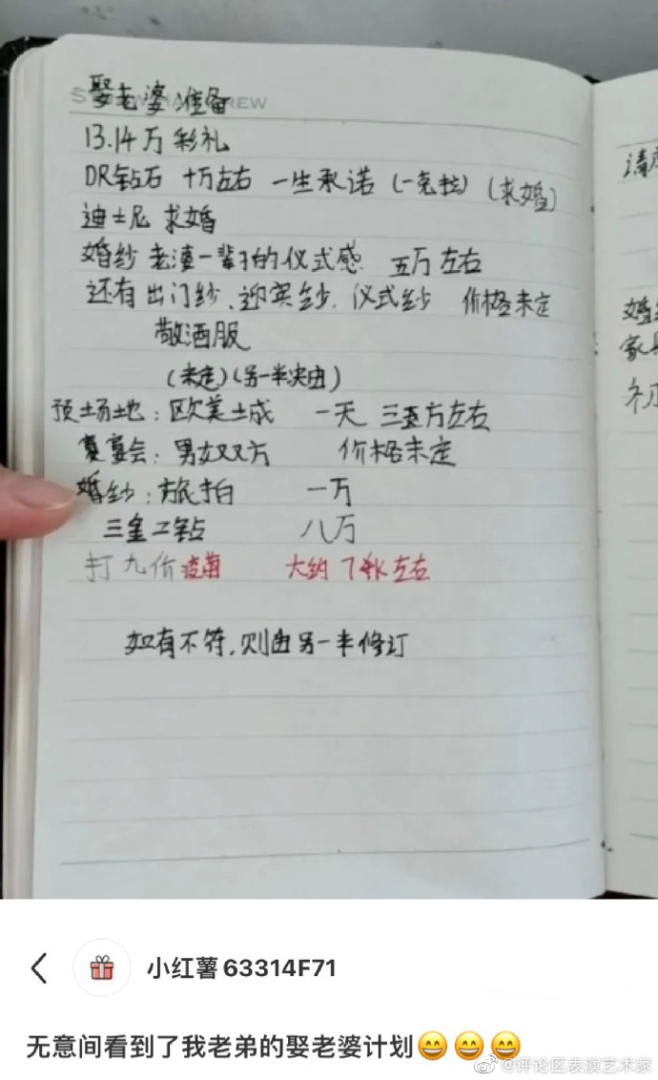 娶老婆准备
13.14万彩礼
DR钻石 十万左右 一生承诺 (一克拉) (求婚)
迪士尼 求婚
婚纱 老凑一辈子的仪式感 五万左右
还有出门纱、迎宾纱、仪式纱 价格未定
敬酒服
(未定)(另一半决由)
预场地:欧美土成 一天 三五万左右
宴会:男女双方 价格未定
婚纱:旅拍 一万
三金工钻 八万
打九价疫苗 大约7千左右
如有不符,则由另一半修订
小红薯63314F71
无意间看到了我老弟的娶老婆计划😄😄😄
@评论区表演艺术家